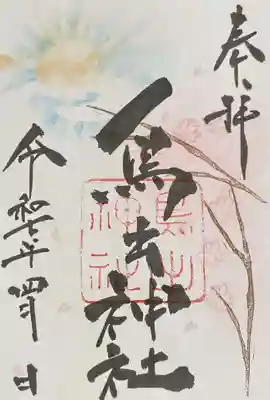 奉拝
鳥出神社
鳥出
神社
令和七年四月 日